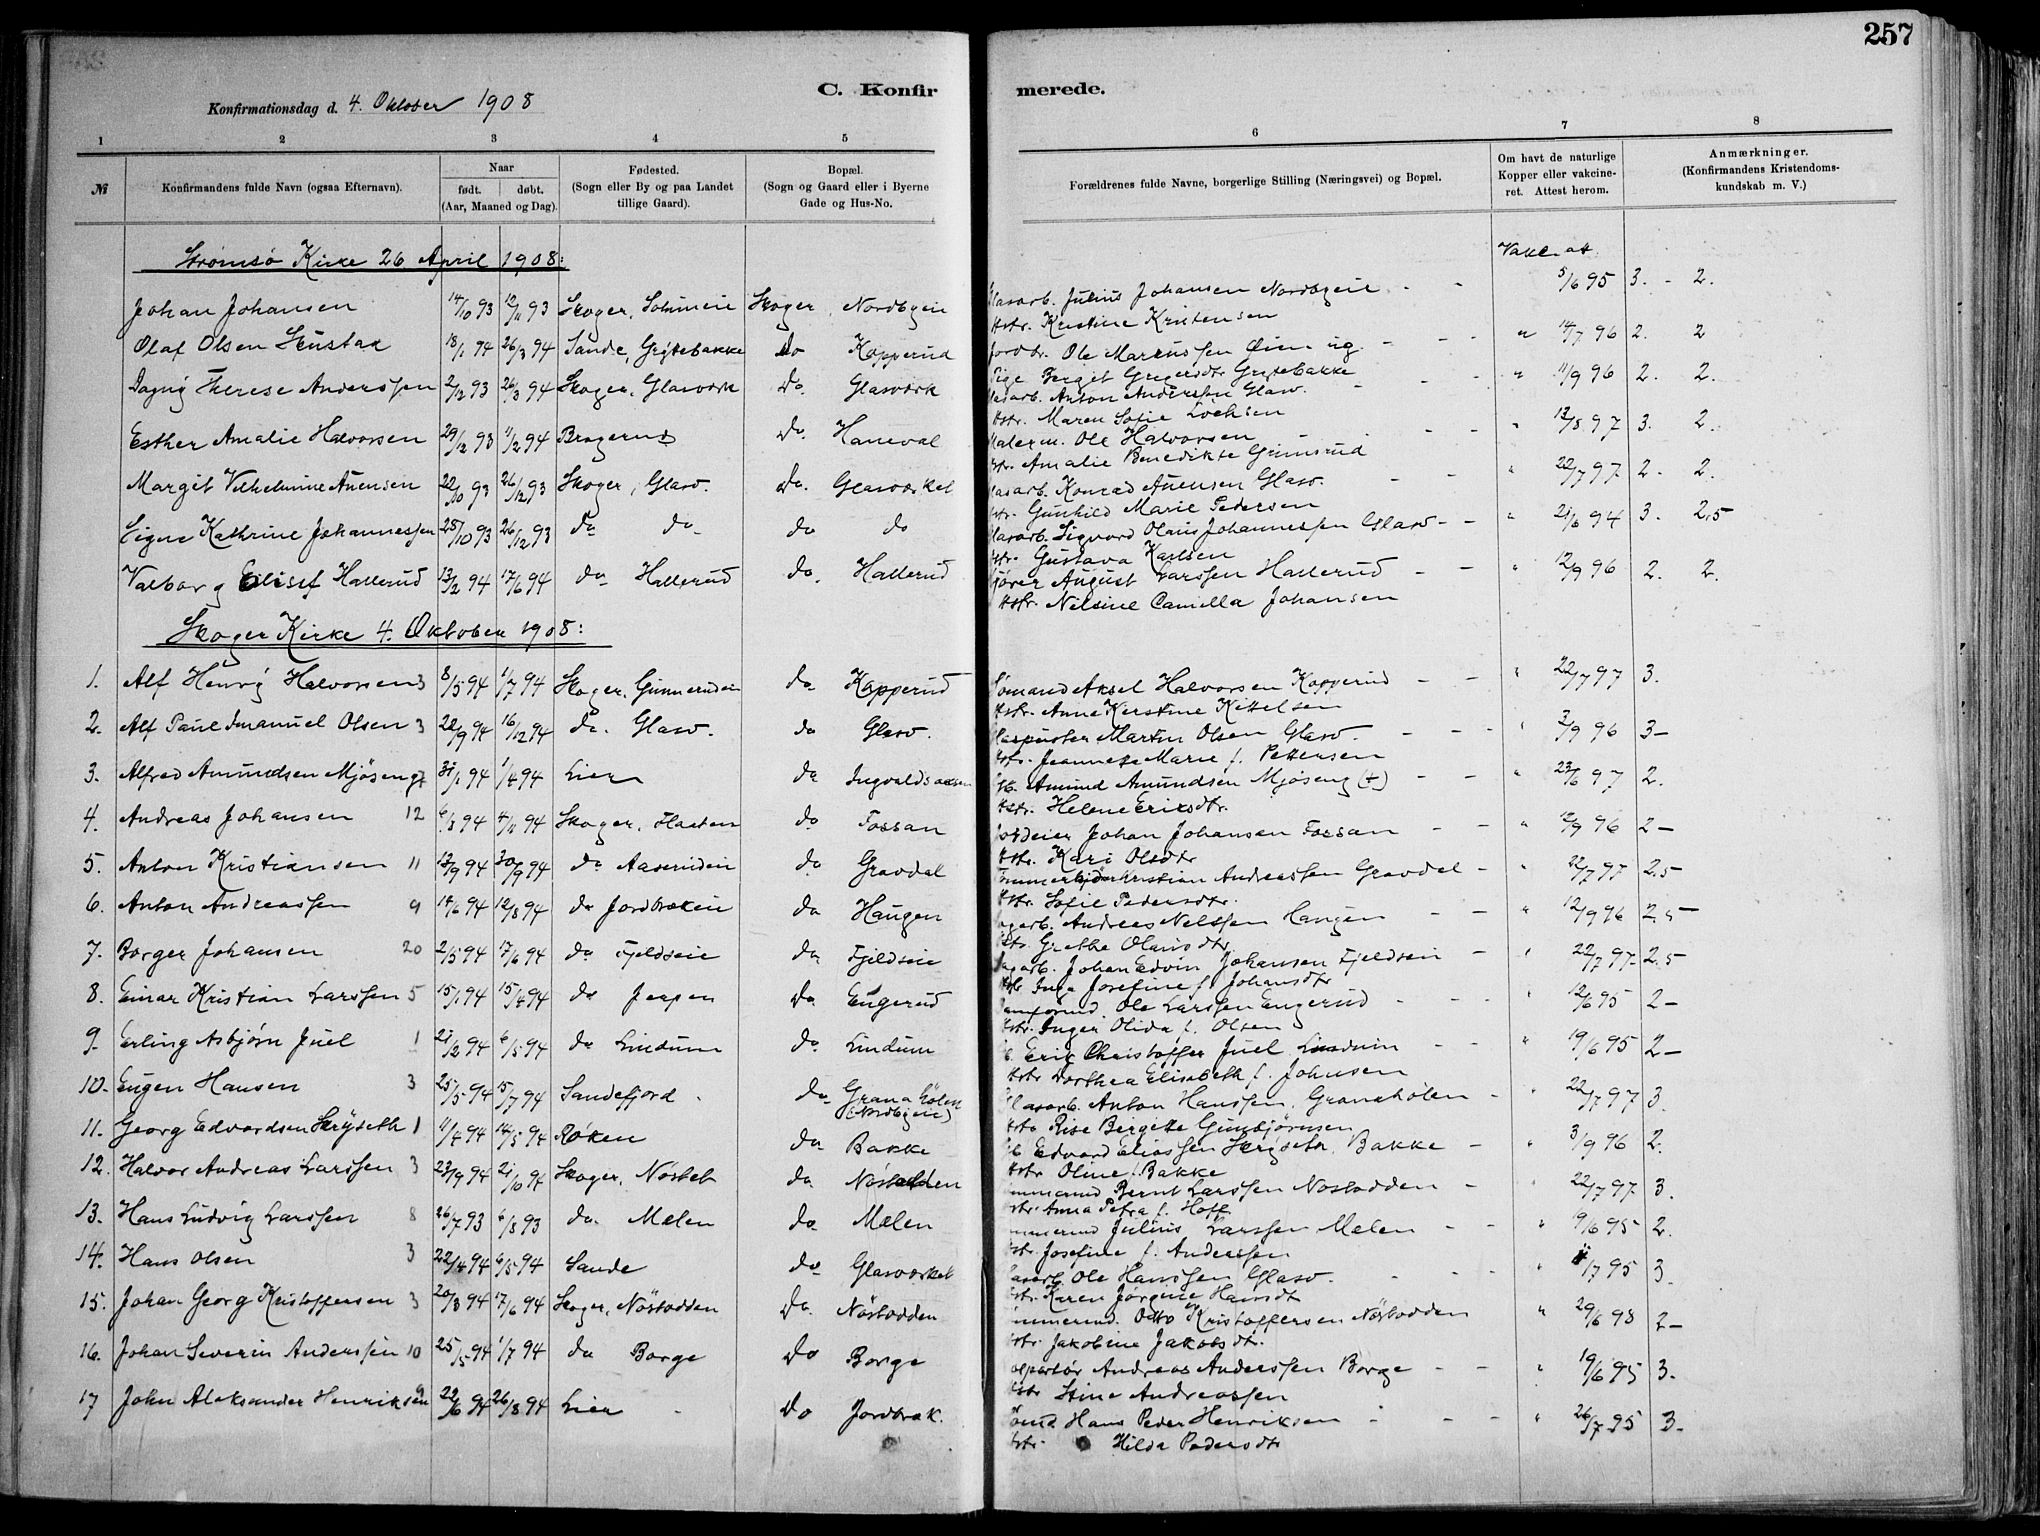 257
C. Konfirmerede.
Konfirmationsdag d. 4. Oktober 1908
1 2 3 4 5 6 7 8
№ Konfirmandens fulde Navn (ogsaa Efternavn). Naar født. døbt. (Aar, Maaned og Dag). Fødested. (Sogn eller By og paa Landet tillige Gaard). Bopæl. (Sogn og Gaard eller i Byerne Gade og Hus-No. Forældrenes fulde Navne, borgerlige Stilling (Næringsvei) og Bopæl. Om havt de naturlige Kopper eller vakcineret. Attest herom. Anmærkninger. (Konfirmandens Kristendomskundskab m. V.)
Strømsø Kirke 26 April 1908:
Vakc. att.
Johan Johansen 14/10 93 12/11 93 Skoger, Solumeie Skoger, Nordbyeie Glasarb. Julius Johansen Nordbyeie - - 5/6 95 3. - 2.
Hstr. Kristine Kristensen
Olaf Olsen Skustad 18/1 94 26/3 94 Sande, Grytebakke do Kopperud Jordbr. Ole Markussen Øien ug. - - " 14/7 96 2. 2
Pige Berget Gregersdtr Grytebakke
Dagny Therese Anderssen 2/12 93 26/3 94 Skoger, Glasværk Do. Glasværk Glasarb. Anton Anderssen Glasv. - - " 11/9 96 2. 2.
Hstr. Maren Sofie Lochsen
Esther Amalie Halvorsen 29/12 93 11/2 94 Bragernes Do. Haneval Malerm. Ole Halvorsen - - " 13/8 97 3. 2.
Hstr. Amalie Benedikte Grimsrud
Margit Vilhelmine Auensen 22/10 93 26/12 93 Skoger, Glasv. Do. Glasværket Glasarb. Konrad Auensen Glasv. - - " 22/7 97 2. 2.
Hstr. Gunhild Marie Pedersen
Signe Kathrine Johannessen 25/10 93 26/12 93 do do do do Glasarb. Sigvard Olaus Johannessen Glasv - - " 21/6 94 3. 2,5
Hstr. Gustava Karlsen
Valborg Elisef Hallerud 13/2 94 17/6 94 do Hallerud do. Hallerud Kjører August Larssen Hallerud - - " 12/9 96 2. 2.
Hstr. Nilsine Camilla Johansen
Skoger Kirke 4. Oktober 1908:
1. Alf Henry Halvorsen 3 8/5 94 1/7 94 Skoger, Gunnerudeie do Kopperud Sømand Aksel Halvorsen Kopperud - - " 22/7 97 3.
Hstr. Anne Kerstine Kittelsen
2. Alf Paul Imanuel Olsen 3 22/9 94 16/12 94 do. Glasv. do Glasv. Glaspuster Martin Olsen Glasv. - - " 2/9 96 3-
Hstr. Jeannette Marie f. Pettersen
3. Alfred Amundsen Mjøseng 7 31/1 94 1/4 94 Lier do Ingvaldsaasen Gb. Amund Amundsen Mjøseng (+) - - " 23/6 97 2.
Hstr. Helene Eriksdtr.
4. Andreas Johansen 12 6/8 94 4/11 94 Skoger, Flaaten do Fossan Jordeier Johan Johansen Fossan - - " 12/9 96 2-
Hstr. Kari Olsdtr
5. Anton Kristiansen 11 13/9 94 30/9 94 do Aaserudeie do Gravdal Tømmerkjører Kristian Andreassen Gravdal - " 22/7 97 2,5
Hstr Sofie Pedersdtr.
6. Anton Andreassen 9 14/6 94 12/8 94 do Jordbrækeie do Haugen Dagarb. Andreas Nelssen Haugen - - " 12/9 96 2,5
Hstr Grethe Olausdtr.
7. Borger Johansen 20 2/5 94 17/6 94 do Fjeldseie do Fjeldseie Dagarb. Johan Edvin Johansen Fjeldseie - " 22/7 97 2,5
Hstr Inga Josefine f. Johansdtr
8. Einar Kristian Larssen 5 15/1 94 15/4 94 do Jarpen Do. Eugerud Tømmermd. Ole Larssen Eugerud - - " 12/6 95 2-
Hstr. Inger Olida f. Olsen
9. Erling Asbjørn Juel 1 21/2 94 6/5 94 do Lindum do. Lindum Gb. Erik Christoffer Juel Lindum - - " 19/6 95 2-
Hstr Dorthea Elisabeth f. Johnsen
10. Eugen Hansen 3 25/5 94 15/7 94 Sandefjord do Granahølen (Nordbyeie) Glasarb. Anton Hanssen, Granahølen - " 22/7 97 3.
Hstr Rise Bergitte Gunbjørnsen
11. Georg Edvardsen Skryseth 1 11/4 94 14/5 94 Røken do Bakke Gb Edvard Eliassen Skryseth, Bakke - " 3/9 96 2.
Hstr Oline f. Bakke
12. Halvor Andreas Larssen 3 23/9 94 21/10 94 Skoger, Nøstet do Nøstodden Tømmermd Bernt Larssen Nøstodden - " 22/7 97 3.
Hstr. Anna Petra f. Hoff
13. Hans Ludvig Larssen 8 26/7 93 6/8 93 do. Mælen do Mælen Tømmermd Julius Larssen Mælen - - " 9/6 95 2.
Hstr. Josefine f. Anderssen
14. Hans Olsen 3 22/4 94 6/5 94 Sande do Glasværket Glasarb Ole Hanssen Glasv. - - " /7 95 3.
Hstr. Karen Jørgine Hansdtr
15. Johan Georg Kristoffersen 3 20/3 94 17/6 94 Skoger, Nøstodden Do. Nøstodden Tømmermd. Otto Kristoffersen Nøstodden " 29/6 98 2-
Hstr. Jakobine Jakobsdtr.
16. Johan Severin Anderssen 10 25/5 94 1/7 94 do Borge Do Borge Andreas Anderssen Borge - - " 19/6 95 3.
Hstr Stine Andreassen
17 John Aleksander Henriksen 9 22/6 94 26/8 94 Lier - Do Jordbræk. Sømd Hans Peder Henriksen - - - " 26/7 95 3.
Hstr. Hilda Pedersdtr